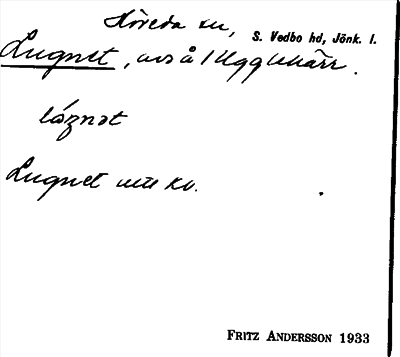 Höreda sn, S. Vedbo hd, Jönk. l.
Lugnet, avs å 1 Ugglekärr.
láznət
Lugnet utu kv.
FRITZ ANDERSSON 1933